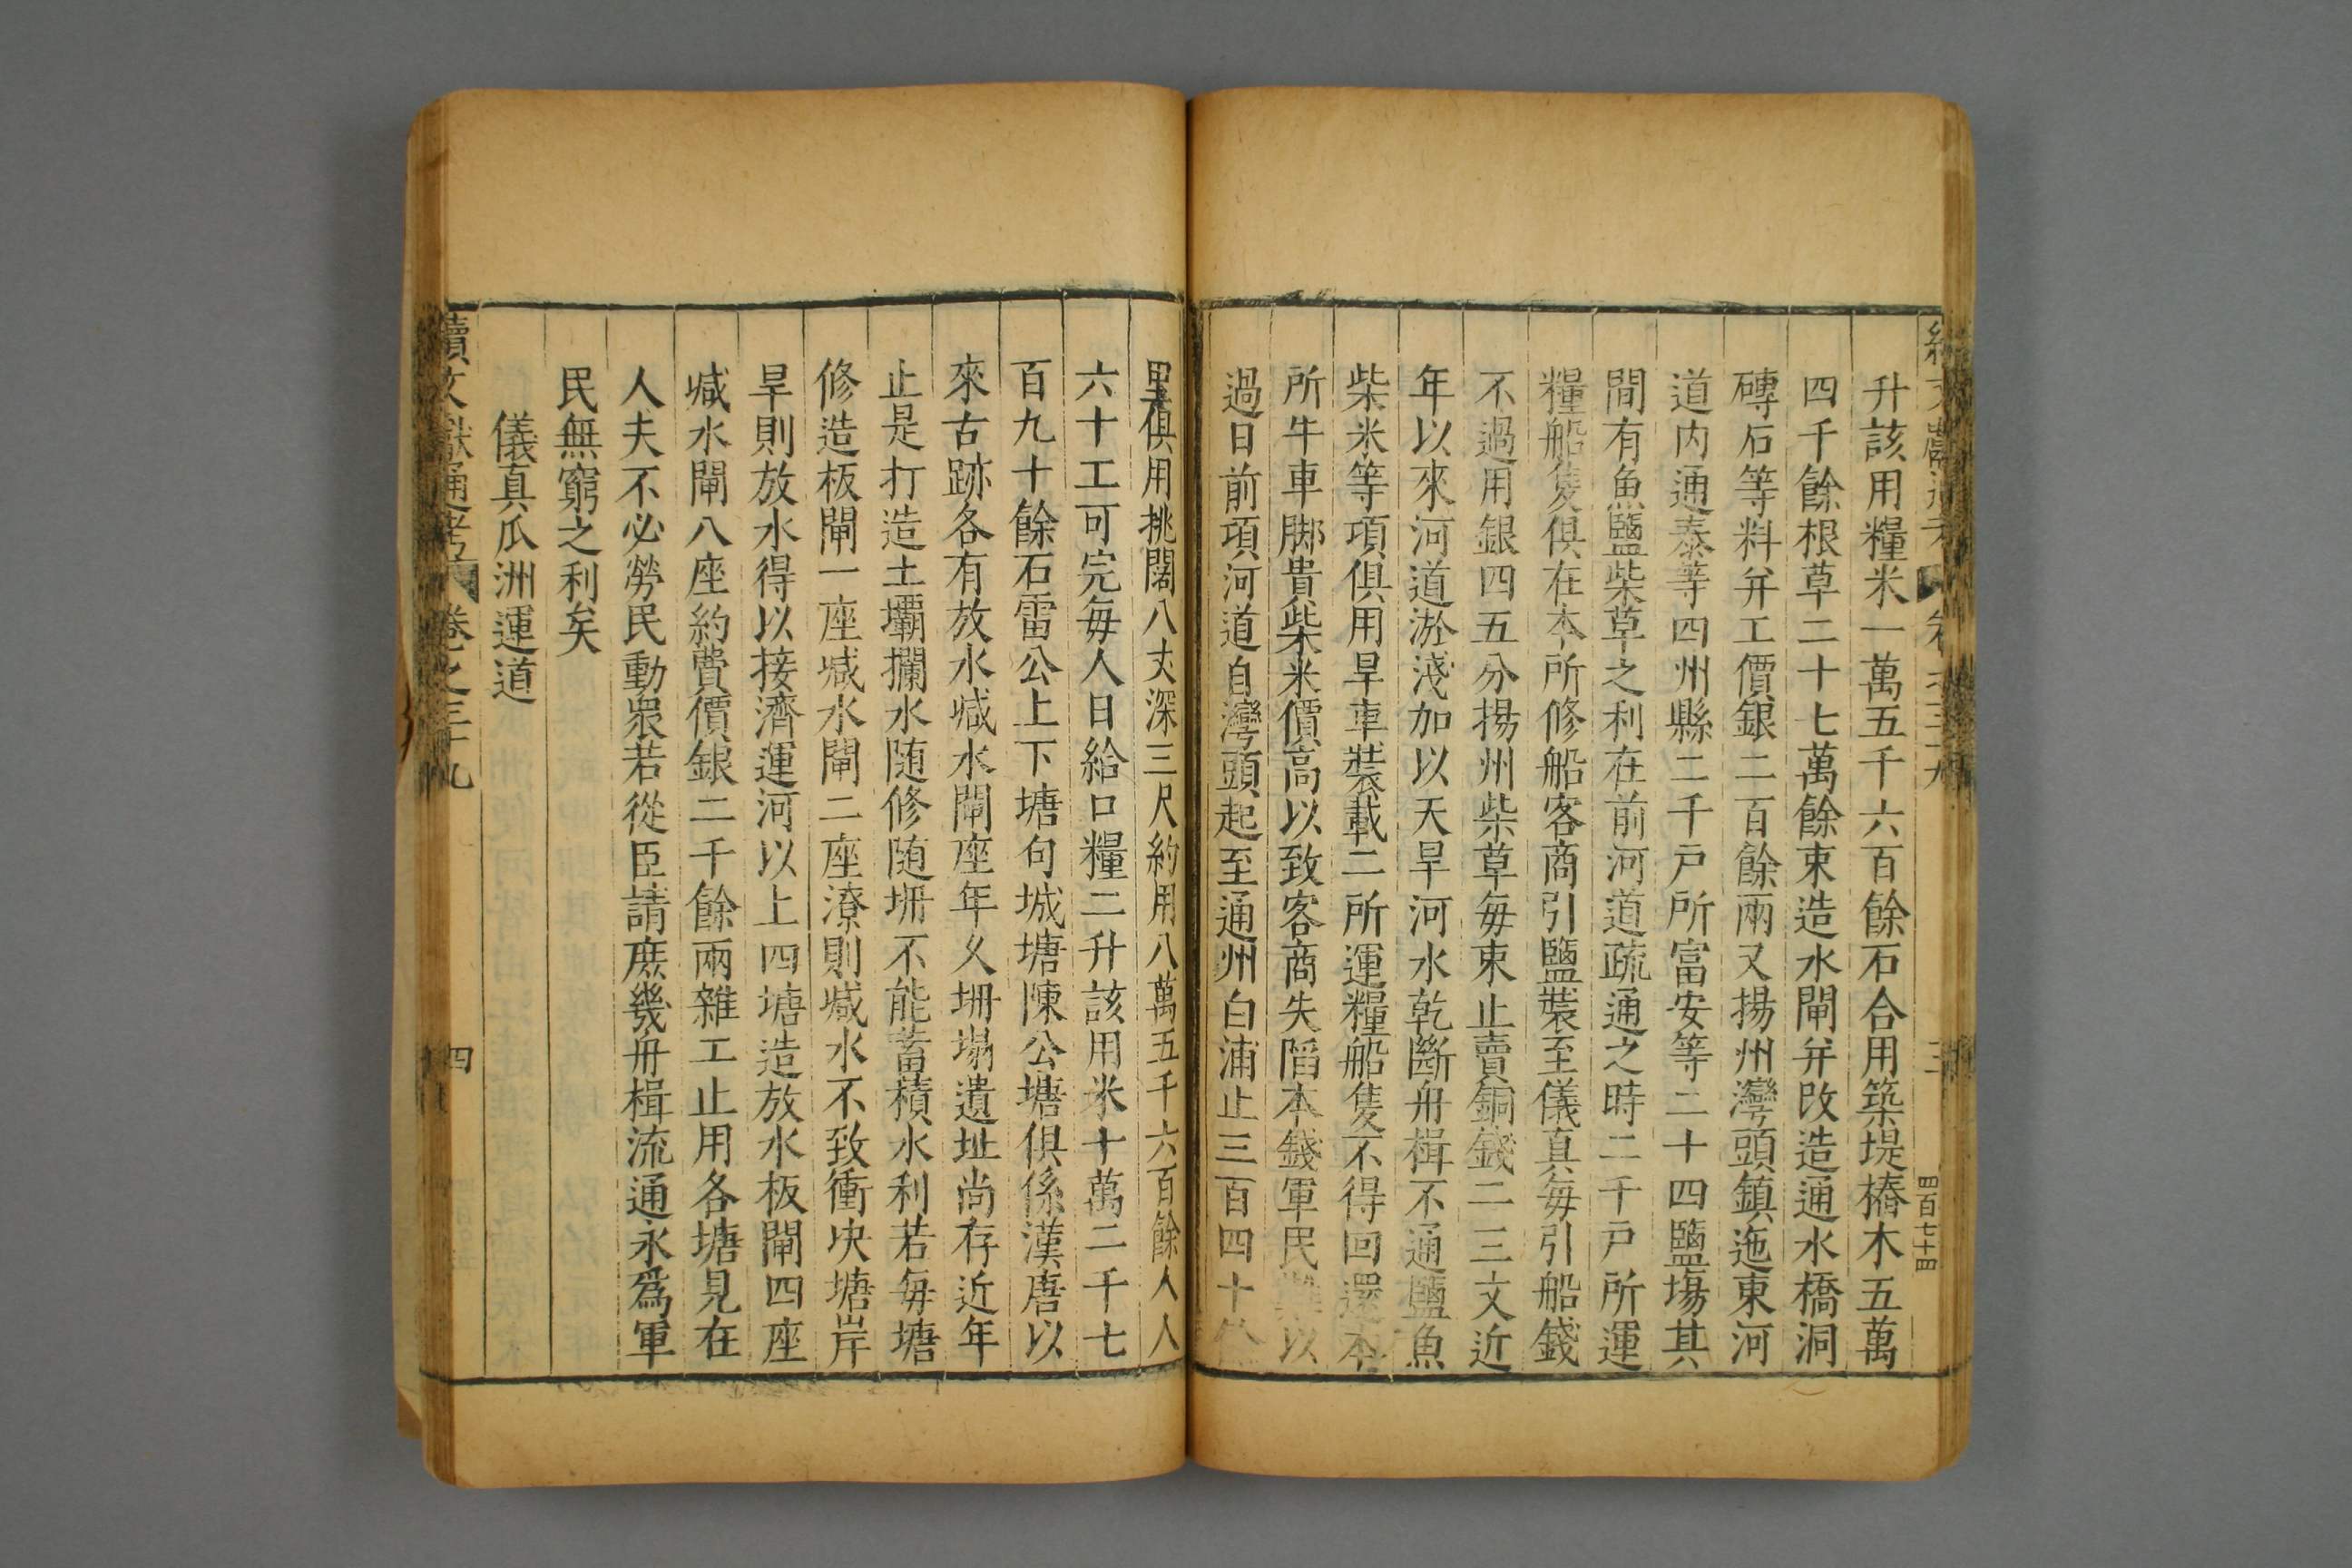 升該用糧米一萬五千六百餘石合用築堤樁木五萬
四千餘根草二十七萬餘束造水閘并改造通水橋洞
磚石等料并工價銀二百餘兩又揚州灣頭鎮迤東河
道內通泰等四州縣二千戶所富安等二十四鹽塲其
間有魚鹽柴草之利在前河道疏通之時二千戶所運
糧船隻俱在本所修船客商引鹽裝至儀真每引船錢
不過用銀四五分揚州柴草每束止賣銅錢二三文近
年以來河道淤淺加以天旱河水乾斷舟楫不通鹽魚
柴米等項俱用旱車裝載二所運糧船隻不得回還本
所牛車脚貴柴米價高以致客商失陷本錢軍民以
過日前項河道自灣頭起至通州白浦止三百四十
里俱用挑闊八丈深三尺約用八萬五千六百餘人人
六十工可完每人日給口糧二升該用米十萬二千七
百九十餘石雷公上下塘句城塘陳公塘俱係漢唐以
來古跡各有放水減水閘座年乆坍塌遺址尚存近年
止是打造土壩攔水随修随坍不能蓄積水利若每塘
修造板閘一座減水閘二座潦則減水不致衝决塘岸
旱則放水得以接濟運河以上四塘造放水板閘四座
減水閘八座約費價銀二千餘兩雜工止用各塘見在
人夫不必勞民動衆若從臣請庶幾舟楫流通永爲軍
民無窮之利矣
儀真瓜洲運道
續文獻通考 卷之三十九
四
四百七十四